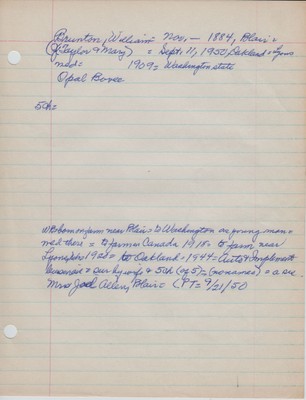 Brunton, William = Nov. - 1884, Blair =
(of Taylor & Mary) = Sept. 11, 1950, Oakland = Lyons
med = 1909 = Washington state
Opal Boree
5ch =
W. B. born on farm near Blair = to Washington as young man =
med there = to farm Canada 1918 = to farm near
Lyons, 1920 = to Oakland = 1944 = Auto & Implement
business = Sur by wife & 5ch (of 5) = (no names) = a sis.
Mrs Joel Allen, Blair = LPT = 9/21/50